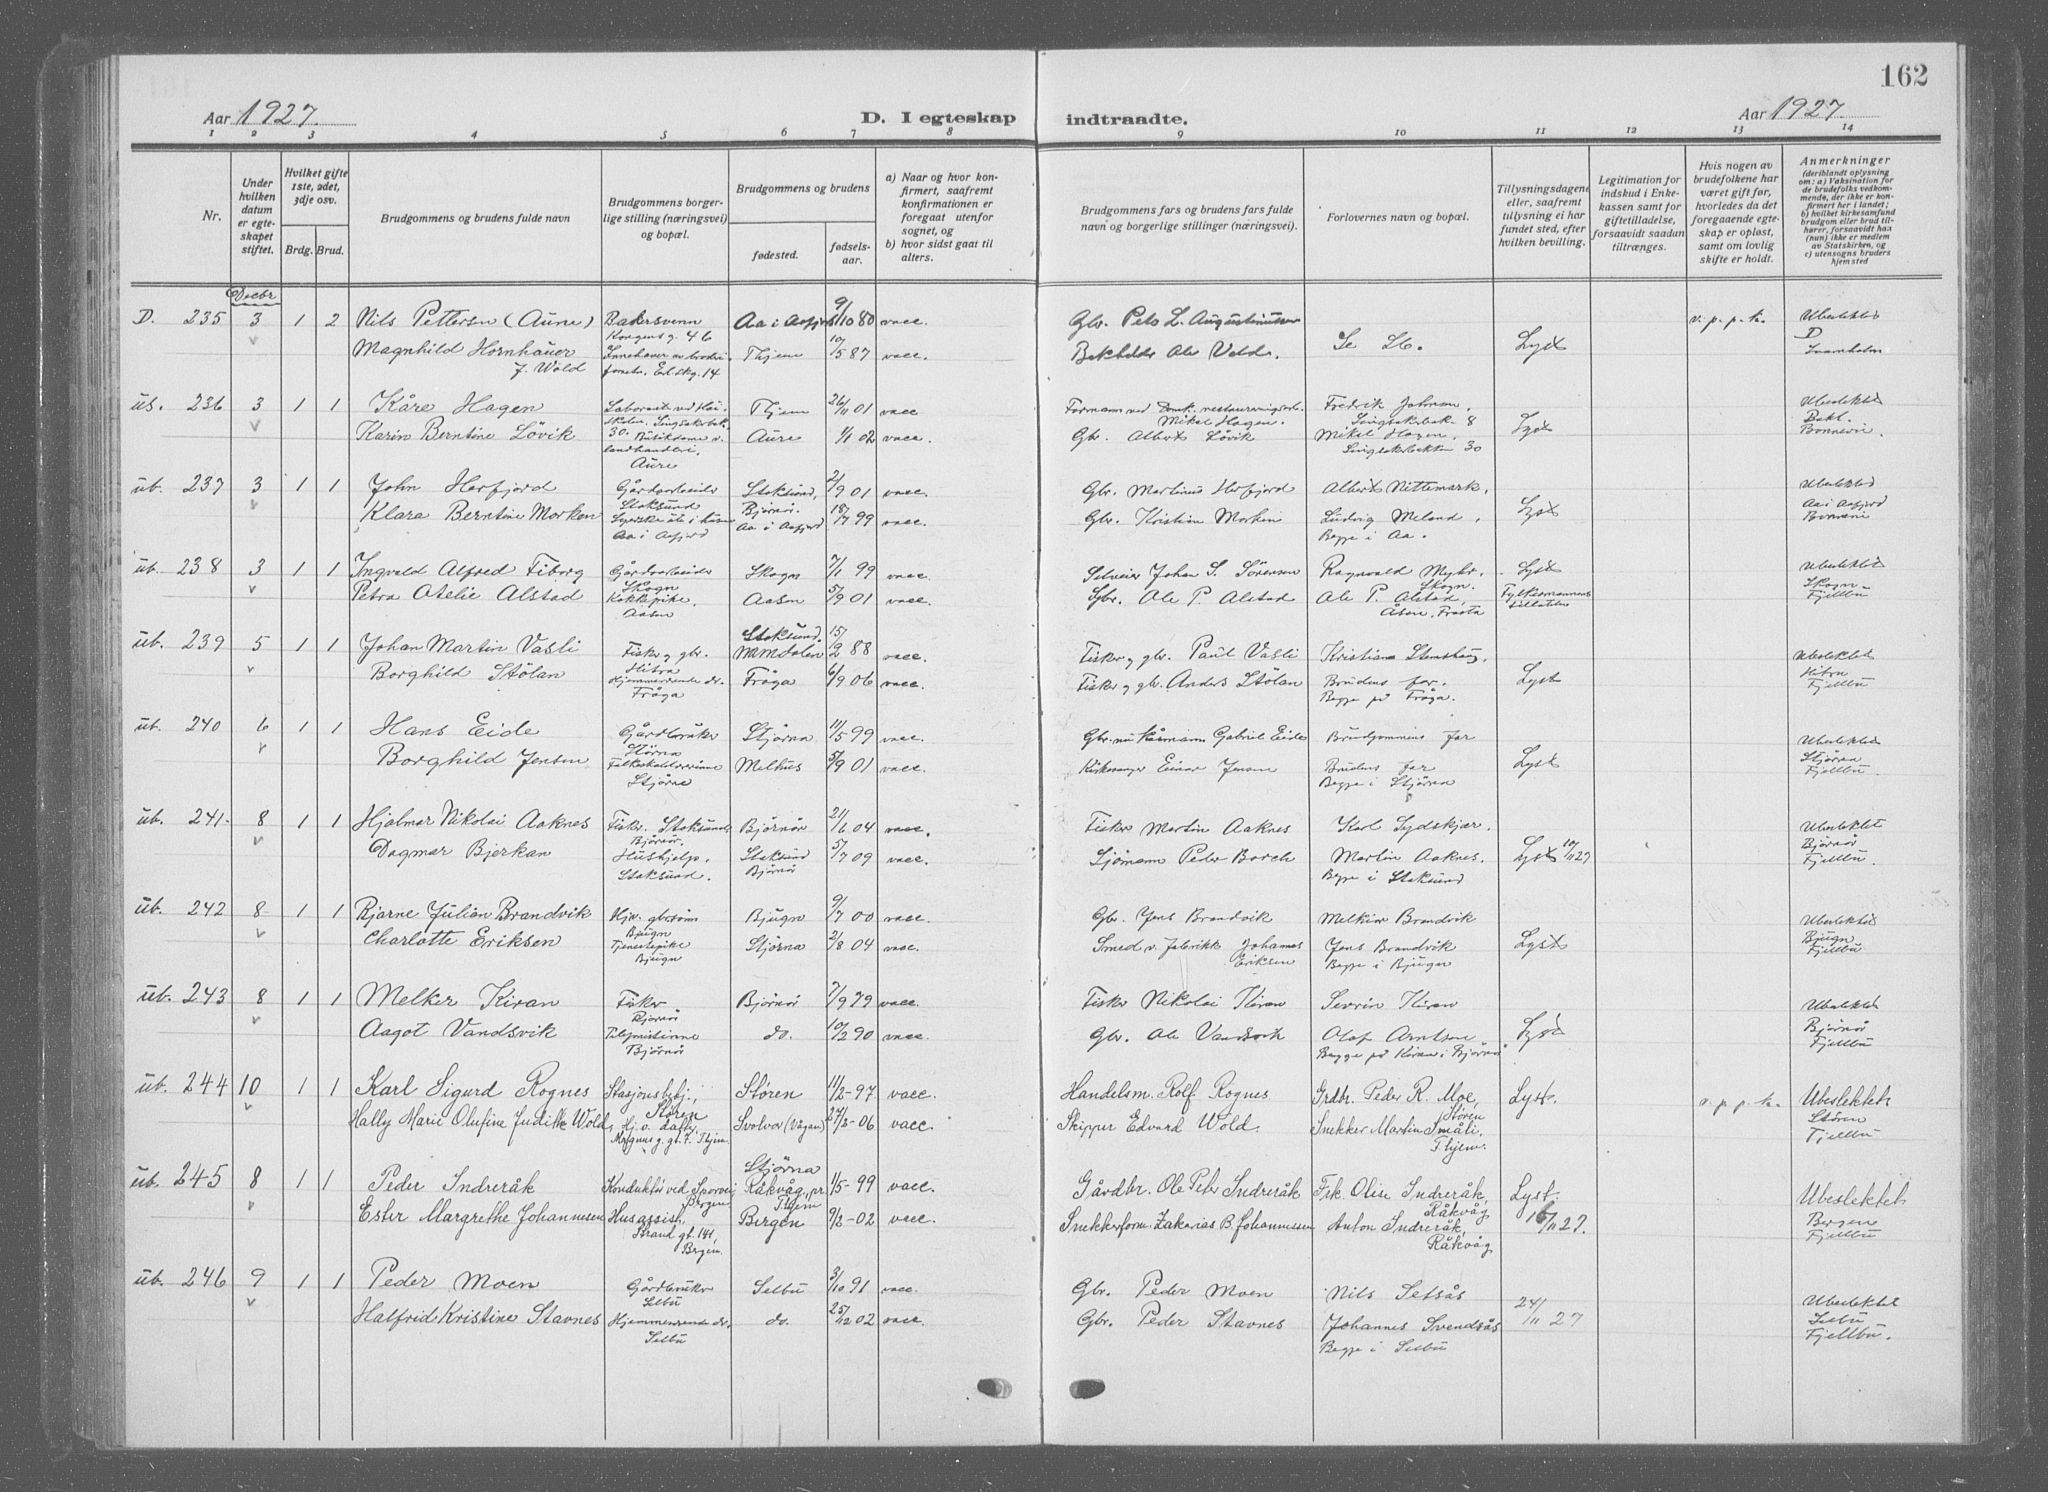 162
Aar 1927. D. I egteskap indtraadte. Aar 1927.
1 2 3 4 5 6 7 8 9 10 11 12 13 14
Nr.
Under hvilken datum er egteskapet stiftet.
Hvilket gifte 1ste, 2det, 3dje osv.
Brdg. Brud.
Brudgommens og brudens fulde navn
Brudgommens borgerlige stilling (næringsvei) og bopæl.
Brudgommens og brudens
fødested. fødselsaar.
a) Naar og hvor konfirmert, saafremt konfirmationen er foregaat utenfor sognet, og
b) hvor sidst gaat til alters.
Brudgommens fars og brudens fars fulde navn og borgerlige stillinger (næringsvei).
Forlovernes navn og bopæl.
Tillysningsdagene eller, saafremt tillysning ei har fundet sted, efter hvilken bevilling.
Legitimation for indskud i Enkekassen samt for giftetilladelse, forsaavidt saadan tiltrænges.
Hvis nogen av brudefolkene har været gift før, hvorledes da det foregaaende egteskap er opløst, samt om lovlig skifte er holdt.
Anmerkninger
(deriblandt oplysning om: a) Vaksination for de brudefolks vedkommende, der ikke er konfirmert her i landet;
b) hvilket kirkesamfund brudgom eller brud tilhører, forsaavidt han (hun) ikke er medlem av Statskirken, og
c) utensogns bruders hjemsted
Decbr
D. 235 3 1 2 Nils Pettersen (Aune) Kongens g. 46 Aa i Aafjord 9/10 80 vacc. v. p. p. k. Ubeslektet
Magnhild Hornhauer f. Wold Thjem 10/5 87 vacc. Lyst D
236 3 1 1 Kåre Hagen Thjem 26/11 01 vacc Mikal Hagen. Fredrik Johnsen, 8 Ubeslektet
Karin Berntine Lövik Aure Aure 1/1 02 vacc. Gbr. Albert Lövik Mikal Hagen, 30 Lyst Bonnevie.
ub. 237 3 1 1 John Herfjord Gårdarbeider Stoksund Stoksund, Bjørnør. 2/9 01 vacc. Gbr. Martinus Herfjord Albert Nittemark, Ubeslektet
Klara Berntine Morken Aa i Aafjord Aa i Aafjord 18/7 99 vacc. Gbr. Kristian Morken Ludvig Meland, Begge i Aa. Lyst Aa i Aafjord Bonnevie
ub. 238 3 1 1 Ingvald Alfred Fiborg Gårdarbeider Skogn Skogn 7/1 99 vacc Selveier Johan S. Sörensen Ragnvald Myhr, Skogn. Lyst Ubeslektet
Petra Otelie Alstad Kokkepike, Aasen Aasen 5/9 01 vacc. Gbr. Ole P. Alstad Ole P. Alstad, Åsen, Frosta Fylkesmannens tillatelse Skogn Fjellbu
ub. 239 5 1 1 Johan Martin Vasli Fisker og gbr. Hitra Stoksund. 15/2 88 vacc. Fisker og gbr. Paul Vasli Kristian Stenshaug, Ubeslektet
Borghild Stölan Hjemmeværende dr. Fröya Fröya 6/9 06 vacc. Fisker og gbr. Anders Stölan Brudens far. Begge på Fröya. Lyst Hitra Fjellbu
ub. 240 6 1 1 Hans Eide Gårdbruker Stjörna Stjörna 11/5 99 vacc. Gabriel Eide Brudgommens far Ubeslektet
Borghild Jensen Folkeskolelærerinne Stjörna Melhus 5/9 01 vacc. Kirkesanger Einar Jensen Brudens far Begge i Stjörna Lyst Stjörna Fjellbu
ub. 241. 8 1 1 Hjalmar Nikolai Aaknes Fisker. Stoksund, Bjørnør. Bjørnör 21/6 04 vacc. Fisker Martin Aaknes Karl Sydskjær. Ubeslektet
Dagmar Bjerkan Hushjelp. Stoksund. Stoksund Bjørnör 5/7 09 vacc. Sjömann Peder Borch Martin Aaknes. Begge i Stoksund Lyst 10/11 27 Bjørnör Fjellbu.
ub. 242 8 1 1 Bjarne Julian Brandvik Hjv. gbrsönn Bjugn Bjugn 9/7 00 vacc. Gbr. Jens Brandvik Melkior Brandvik Ubeslektet
Charlotte Eriksen Tjenestepike Bjugn Stjörna 2/8 04 vacc. Smed v. fabrikk Johannes Eriksen Jens Brandvik Begge i Bjugn Lyst Bjugn Fjellbu
ub. 243 8 1 1 Melker Kiran Fisker Bjørnör Bjørnör 7/9 79 vacc. Fisker Nikolai Kiran Severin Kiran Ubeslektet
Aagot Vandsvik Bjørnör do. 10/2 90 vacc. Gbr. Ole Vandsvik Olaf Arntsen Begge på Kiran i Bjørnör Lyst Bjørnör Fjellbu
ub. 244 10 1 1 Karl Sigurd Rognes Stasjonsbtj., Stören Stören 11/2-97 vacc. Handelsm. Rolf Rognes Grdbr. Peder R. Moe, Stören Lyst. v. p. p. k. Ubeslektet
Hally Marie Olufine Judithe Wold, Hj. v. Lafts. Magnus g. gt. 7. Thjem. Svolvær (Vågan) 27/2-06 vacc. Skipper Edvard Wold. Snekker Martin Småli, Thjem. Stören Fjellbu
ub. 245 8 1 1 Peder Indreråk Konduktör ved Sporvei, Bergen Stjörna Råkvåg, pr. Thjem 1/5-99 vacc. Gårdbr. Ole Peter Indreråk Frk. Olise Indreråk, Råkvåg Lyst. Ubeslektet
Ester Margrethe Johannesen Husassist, Strand gt. 141, Bergen. Bergen 9/2-02 vacc. Snekkerform. Zakarias B. Johannessen Anton Indreråk, Råkvåg 16/11 27. Bergen Fjellbu
ub. 246 9 1 1 Peder Moen Gårdbruker Selbu Selbu 3/10 91 vacc. Gbr. Peder Moen Nils Setsås Ubeslektet
Halfrid Kristine Stavnes Hjemmeværende dr. Selbu do. 25/12 02 vacc. Gbr. Peder Stavnes Johannes Svendsås Begge i Selbu 24/11 27 Selbu Fjellbu.